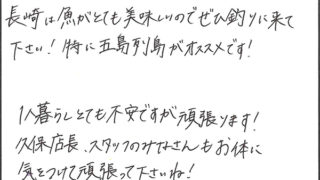 長崎は魚がとても美味しいのでぜひ釣りに来て
下さい！特に五島列島がオススメです！
1人暮らしとても不安ですが頑張ります！
久保店長、スタッフのみなさんもお体に
気をつけて頑張って下さいね！